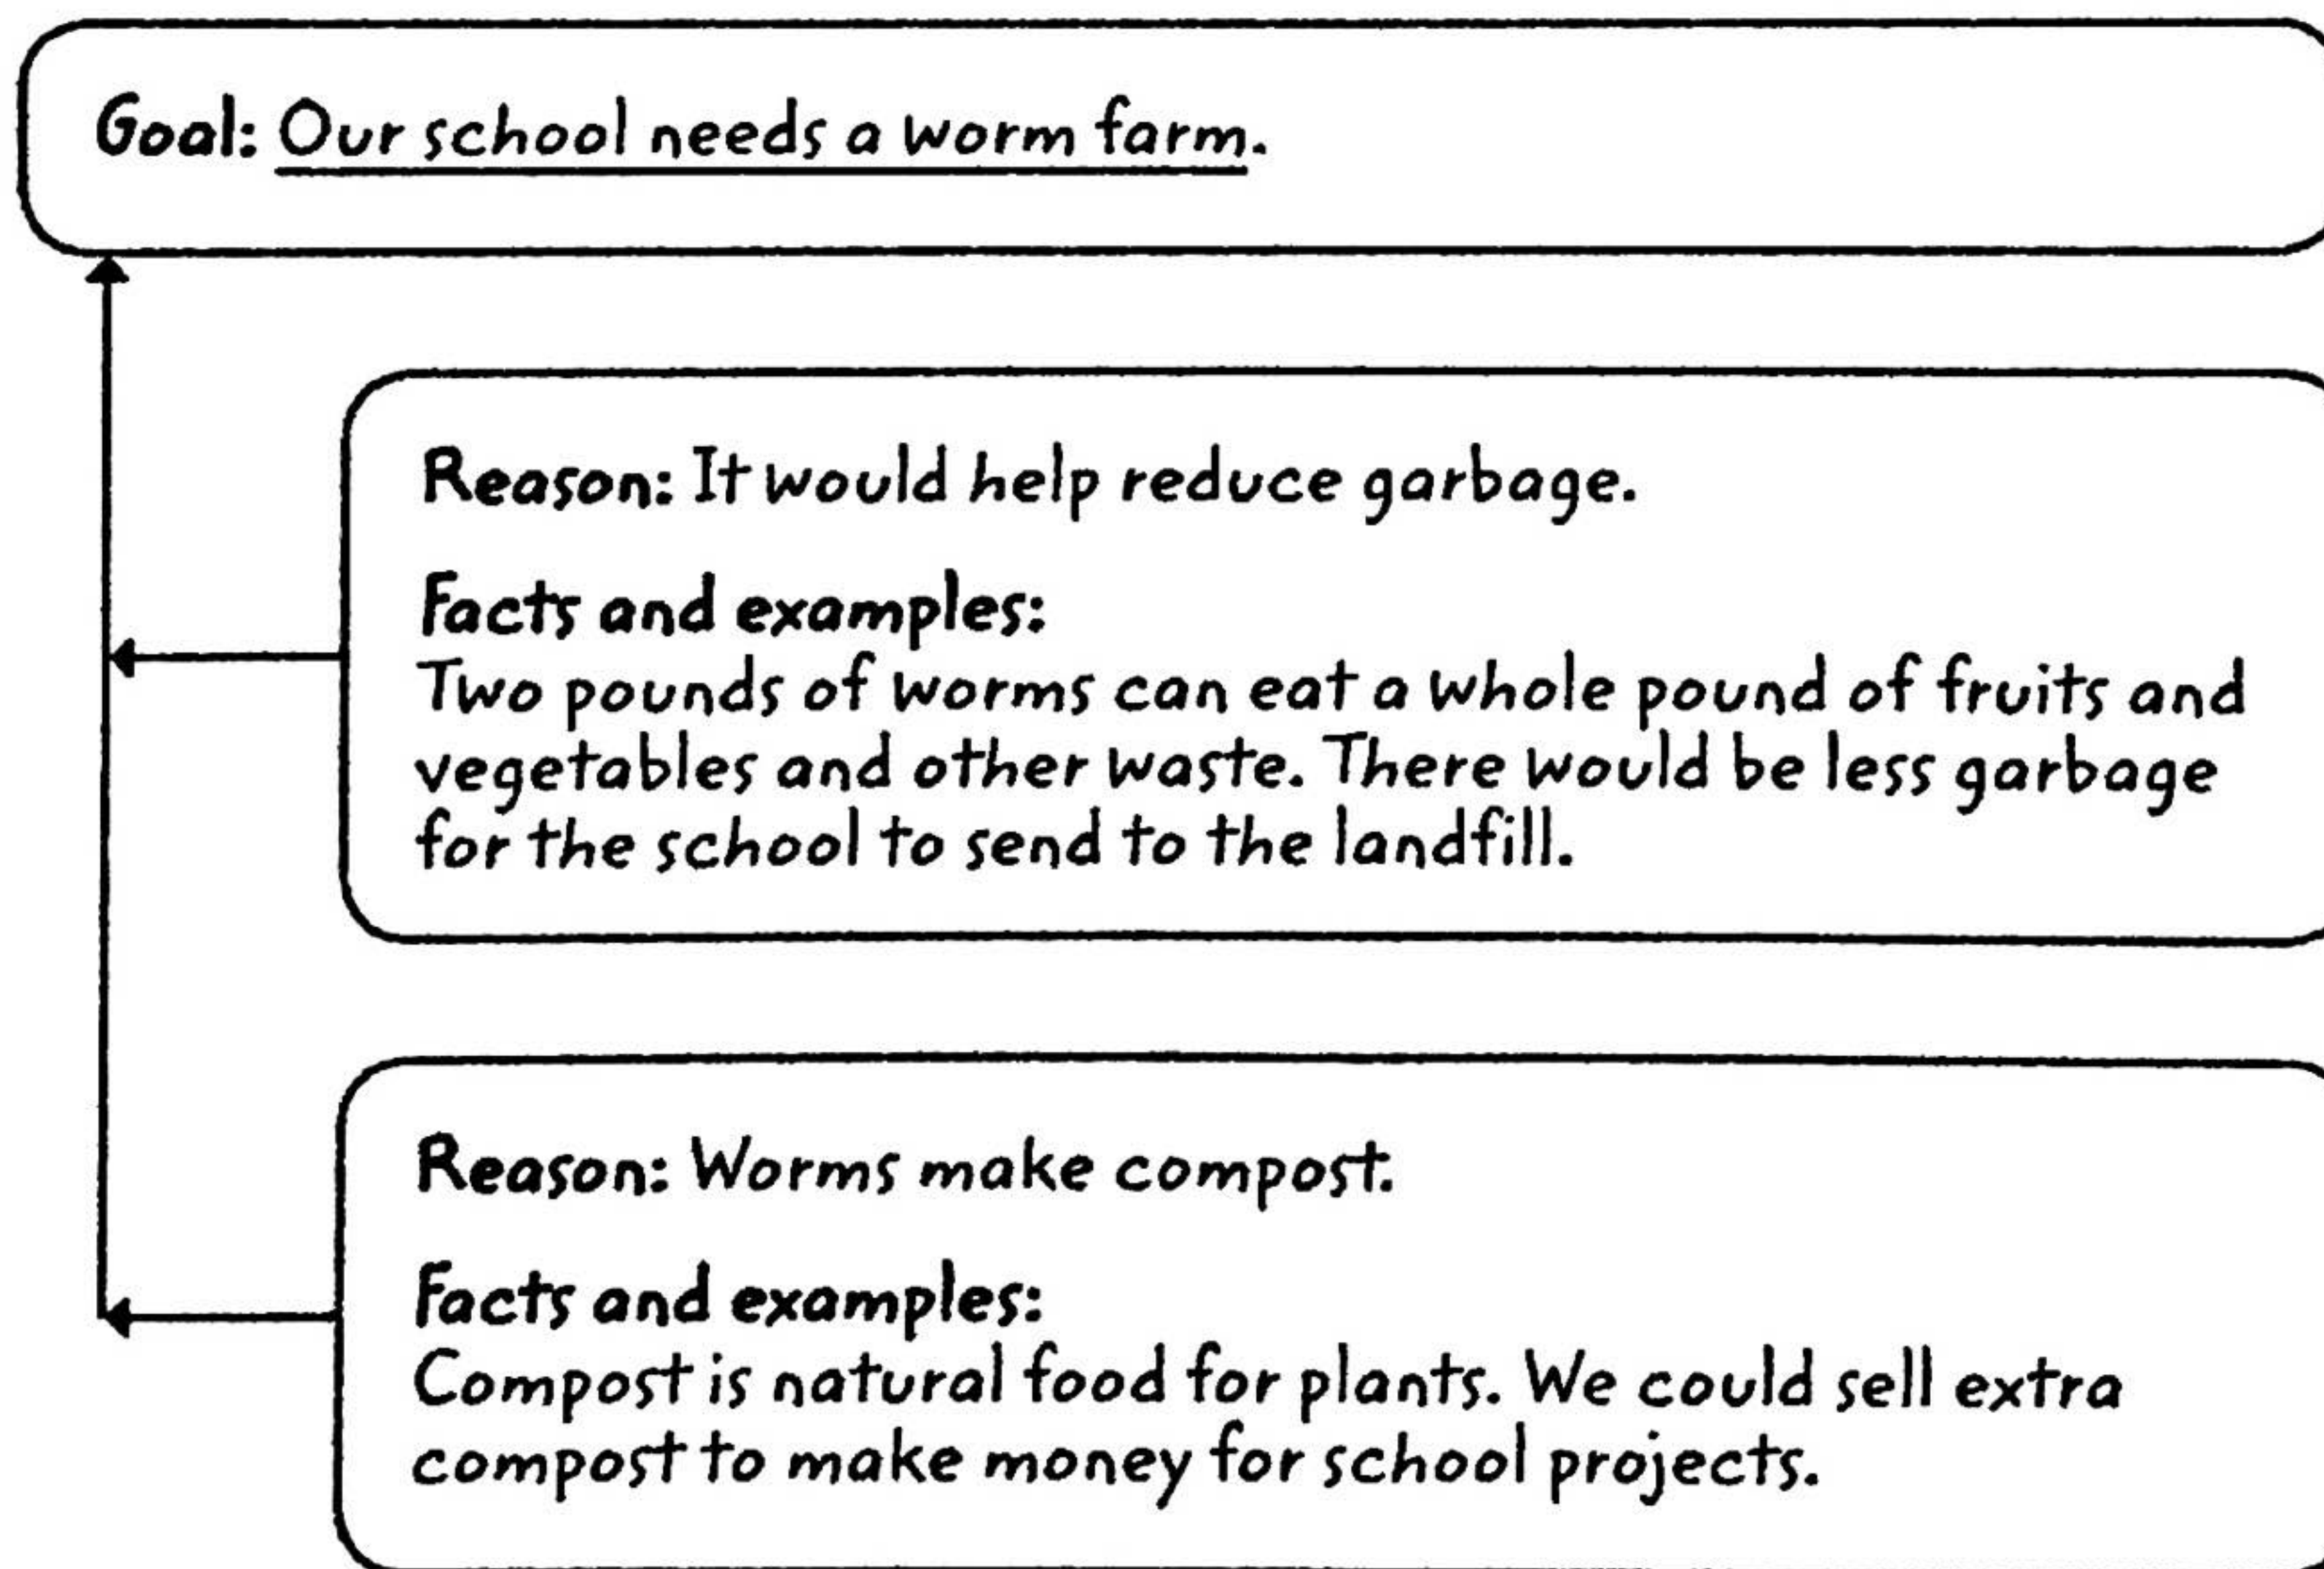 Goal: Our school needs a worm farm.
Reason: It would help reduce garbage.
Facts and examples:
Two pounds of worms can eat a whole pound of fruits and
vegetables and other waste. There would be less garbage
for the school to send to the landfill.
Reason: Worms make compost.
Facts and examples:
Compost is natural food for plants. We could sell extra
compost to make money for school projects.